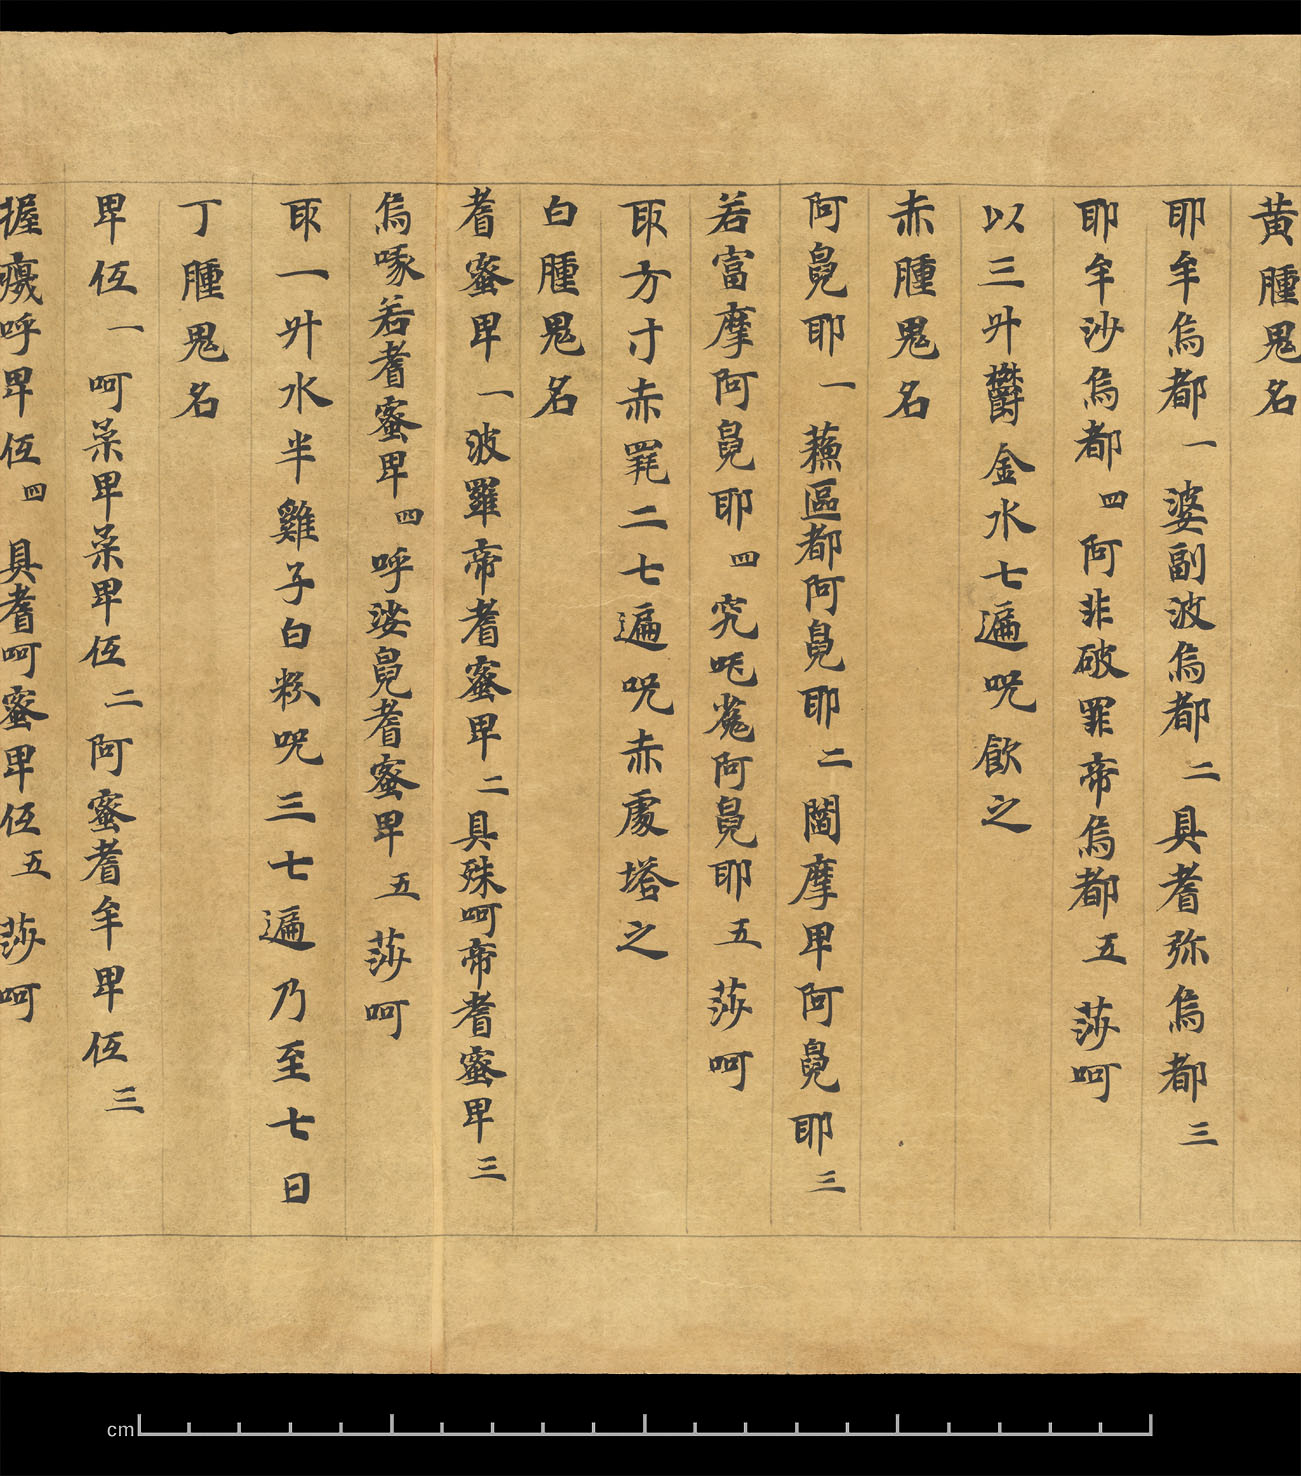 黄腫鬼名
耶牟烏都一婆副波烏都二具耆弥烏都三
耶牟沙烏都四阿非破罪帝烏都五莎呵
以三升欝金水七遍呪飲之
赤腫鬼名
阿㝹耶一蘓區都阿㝹耶二闍摩卑阿㝹耶三
若富摩阿㝹耶四究吒㝹阿㝹耶五莎呵
取方寸赤㲲二七遍呪赤處塔之
白腫鬼名
耆蜜卑一波羅帝耆蜜卑二具殊呵帝耆蜜卑三
烏啄若耆蜜卑四呼娑㝹耆蜜卑五莎呵
取一升水半雞子白粉呪三七遍乃至七日
丁腫鬼名
卑伍一呵柔卑柔卑伍二阿蜜耆牟卑伍三
呼卑伍四具耆呵蜜卑伍五莎呵
cm